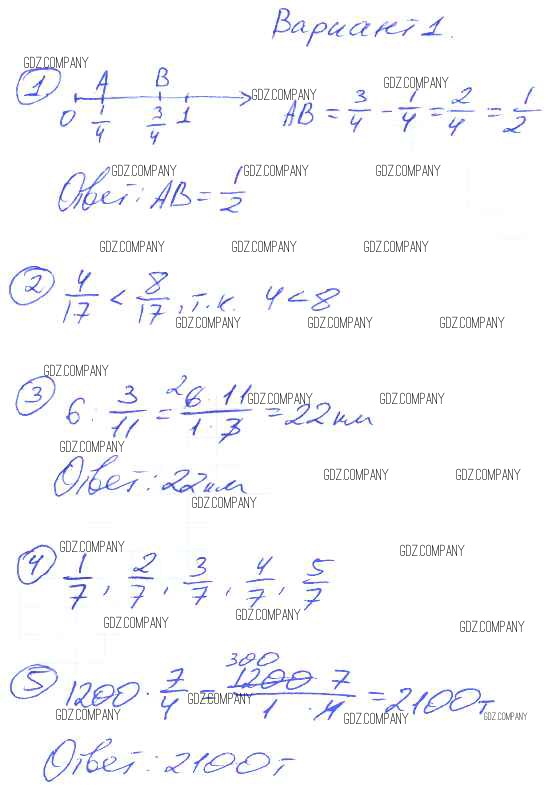 Вариант 1.
GDZ.COMPANY
① A B
GDZ.COMPANY GDZ.COMPANY
0 1/4 3/4 1 AB = 3/4 - 1/4 = 2/4 = 1/2
GDZ.COMPANY GDZ.COMPANY GDZ.COMPANY
Ответ: AB = 1/2
GDZ.COMPANY GDZ.COMPANY GDZ.COMPANY
② 4/17 < 8/17, т.к. 4 < 8
GDZ.COMPANY GDZ.COMPANY GDZ.COMPANY
GDZ.COMPANY
③ 6 : 3/11 = 2 6 · 11 / 1 · 3 = 22 км
GDZ.COMPANY GDZ.COMPANY
GDZ.COMPANY
Ответ: 22 км
GDZ.COMPANY GDZ.COMPANY
GDZ.COMPANY
GDZ.COMPANY GDZ.COMPANY
④ 1/7, 2/7, 3/7, 4/7, 5/7
GDZ.COMPANY GDZ.COMPANY GDZ.COMPANY
⑤ 1200 · 7/4 = 300 1200 · 7 / 1 · 4 = 2100 т
GDZ.COMPANY
GDZ.COMPANY GDZ.COMPANY GDZ.COMPANY
Ответ: 2100 т